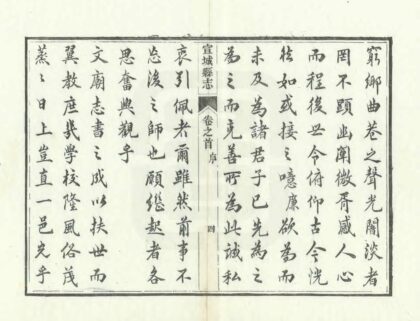 窮鄉曲巷之聲光闇談者
罔不顕幽闡微胥感人心
而程後世今俯仰古今恍
然如或接之噫廉欲為而
未及為諸君子已先為之
為之而克善所為此誠私
宣城縣志
卷之首
序
四
衷引佩者爾雖然前事不
忘後之師也願繼起者各
思奮興觀乎
文廟志書之成以扶世而
翼教庶幾學校隆風俗茂
蒸々日上豈直一邑光乎